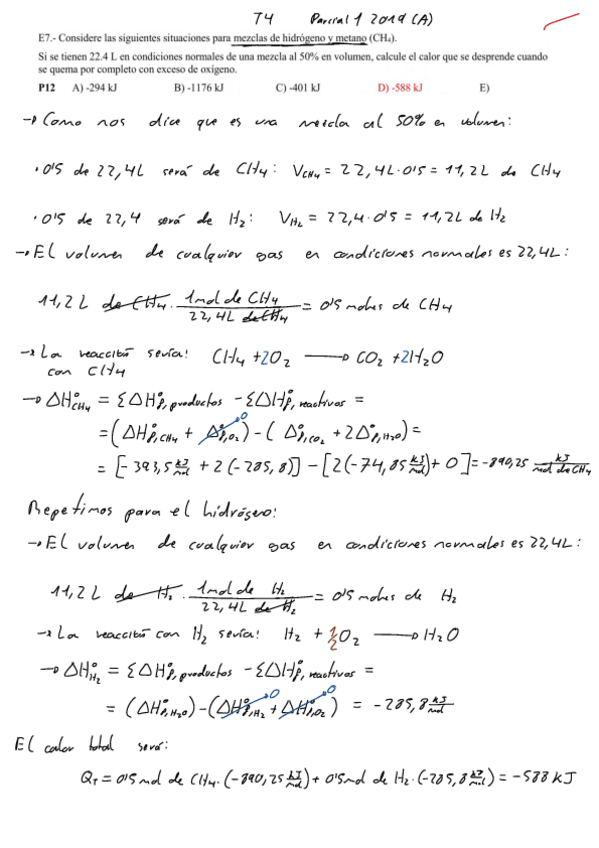 T4 Parcial 1 2019 (A)
E7.- Considere las siguientes situaciones para mezclas de hidrógeno y metano (CH₄).
Si se tienen 22.4 L en condiciones normales de una mezcla al 50% en volumen, calcule el calor que se desprende cuando
se quema por completo con exceso de oxígeno.
P12 A) -294 kJ B) -1176 kJ C) -401 kJ D) -588 kJ E)
→ Como nos dice que es una mezcla al 50% en volumen:
· 0'5 de 22,4L será de CH₄: V_CH₄ = 22,4L·0'5 = 11,2L de CH₄
· 0'5 de 22,4 será de H₂: V_H₂ = 22,4·0'5 = 11,2L de H₂
→ El volumen de cualquier gas en condiciones normales es 22,4L:
11,2 L de CH₄ · 1mol de CH₄ / 22,4L de CH₄ = 0'5 moles de CH₄
→ La reacción sería: CH₄ + 2O₂ → CO₂ + 2H₂O
con CH₄
→ ΔH°CH₄ = ΣΔH°f, productos - ΣΔH°f, reactivos =
= (ΔH°f,CH₄ + Δ°f,O₂) - (Δ°f,CO₂ + 2Δ°f,H₂O) =
= [-393,5 kJ/mol + 2(-285,8)] - [2(-74,85 kJ/mol) + 0] = -890,25 kJ/mol de CH₄
Repetimos para el hidrógeno:
→ El volumen de cualquier gas en condiciones normales es 22,4L:
11,2 L de H₂ · 1mol de H₂ / 22,4L de H₂ = 0'5 moles de H₂
→ La reacción con H₂ sería: H₂ + 1/2 O₂ → H₂O
→ ΔH°H₂ = ΣΔH°f, productos - ΣΔH°f, reactivos =
= (ΔH°f,H₂O) - (ΔH°f,H₂ + ΔH°f,O₂) = -285,8 kJ/mol
El calor total será:
Q_T = 0'5 mol de CH₄·(-890,25 kJ/mol) + 0'5 mol de H₂·(-285,8 kJ/mol) = -588 KJ